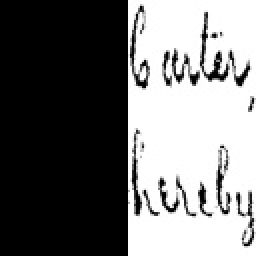 Carter,
hereby